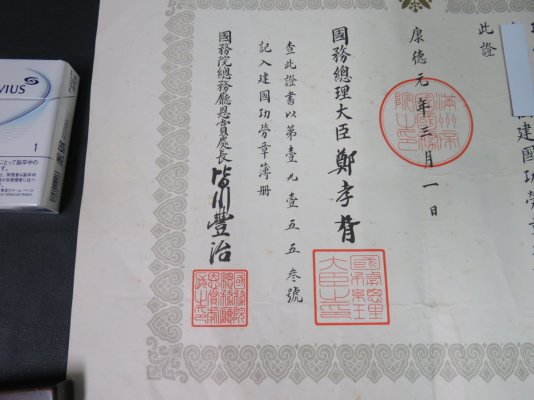 建國功勞章
此證
康德元年三月一日
國務總理大臣 鄭孝胥
查此證書以第壹九壹五五叁號
記入建國功勞章簿冊
國務院總務廳恩賞處長 皆川豐治
國務總理大臣之印
VIUS
1